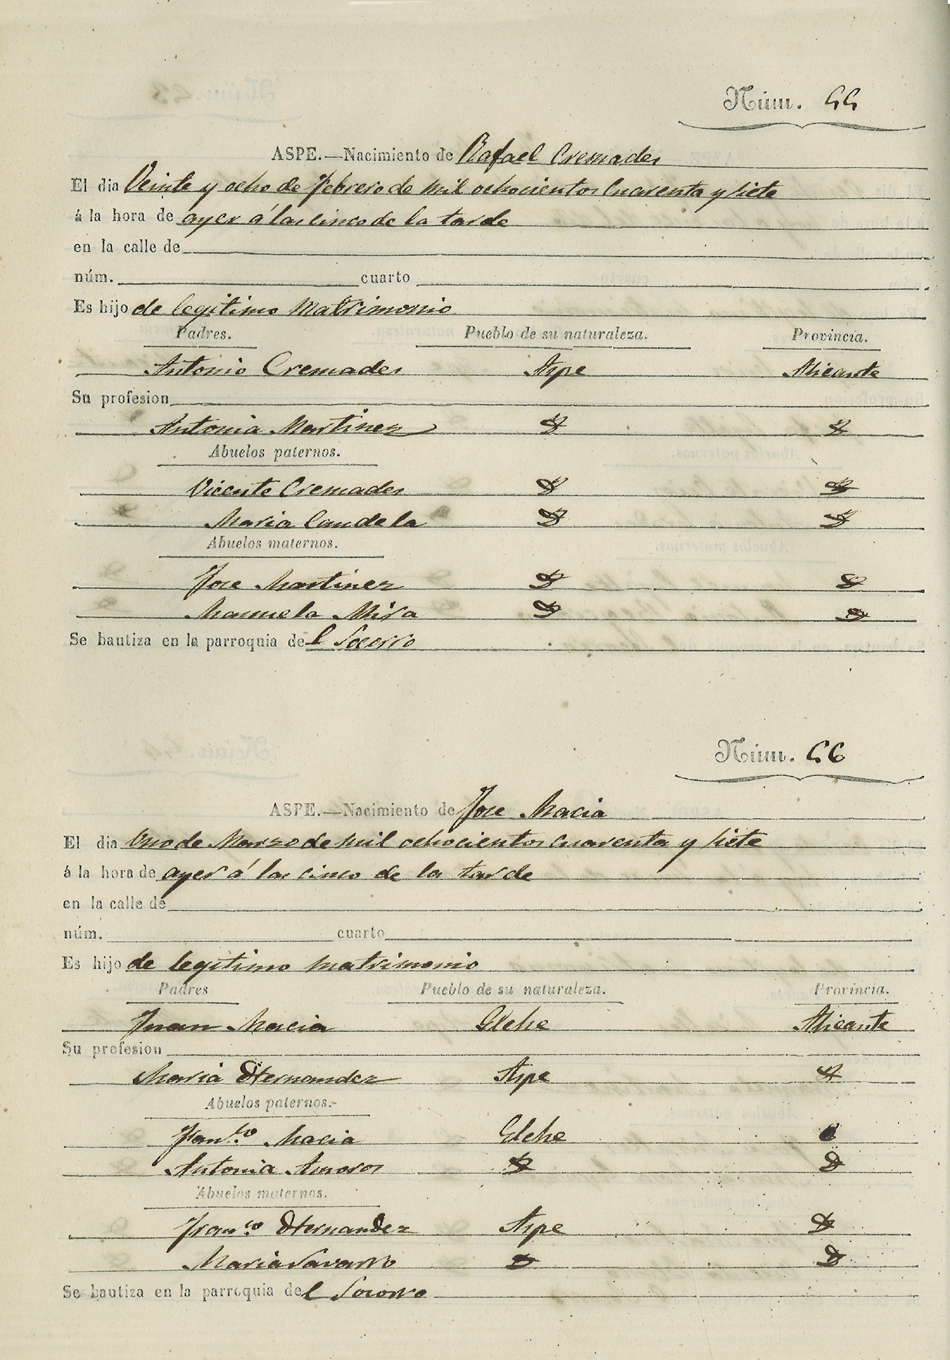 Núm. 44
ASPE.—Nacimiento de Rafael Cremades
El dia Veinte y ocho de febrero de mil ochocientos cuarenta y siete
á la hora de ayer á las cinco de la tarde
en la calle de
núm. cuarto
Es hijo de legitimo matrimonio
Padres. Pueblo de su naturaleza. Provincia.
Antonio Cremades Aspe Alicante
Su profesion
Antonia Martinez
Abuelos paternos.
Vicente Cremades
Maria Candela
Abuelos maternos.
Jose Martinez
Manuela Mira
Se bautiza en la parroquia del Socorro
Núm.
ASPE.—Nacimiento de Jose Macia
El dia Uno de Marzo de mil ochocientos cuarenta y siete
á la hora de ayer á las cinco de la tarde
en la calle de
núm. cuarto
Es hijo de legitimo matrimonio
Padres Pueblo de su naturaleza. Provincia.
Juan Macia Elche Alicante
Su profesion
Maria Hernandez Aspe
Abuelos paternos.
Fran.co Macia Elche
Antonia Amoros
Abuelos maternos.
Fran.co Hernandez Aspe
Maria Navarro
Se bautiza en la parroquia del Socorro